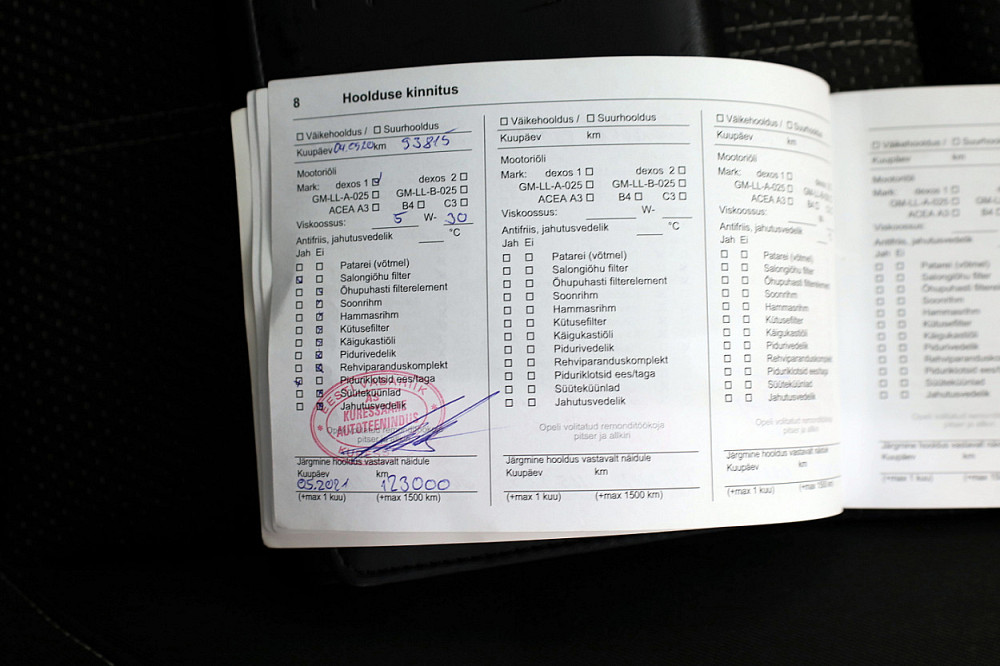 8 Hoolduse kinnitus
☐ Väikehooldus / ☐ Suurhooldus
Kuupäev 04.0520 km 93815
Mootoriõli
Mark: dexos 1 ☑ dexos 2 ☐
GM-LL-A-025 ☐ GM-LL-B-025 ☐
ACEA A3 ☐ B4 ☐ C3 ☐
Viskoossus: 5 W- 30
Antifriis, jahutusvedelik °C
Jah Ei
Patarei (võtmel)
Salongiõhu filter
Õhupuhasti filterelement
Soonrihm
Hammasrihm
Kütusefilter
Käigukastiõli
Pidurivedelik
Rehviparanduskomplekt
Piduriklotsid ees/taga
Süüteküünlad
Jahutusvedelik
EESTI VABARIIK
AS
KURESSAARE
AUTOTEENINDUS
Järgmine hooldus vastavalt näidule
Kuupäev km
05.2021 123000
(+max 1 kuu) (+max 1500 km)
☐ Väikehooldus / ☐ Suurhooldus
Kuupäev km
Mootoriõli
Mark: dexos 1 ☐ dexos 2 ☐
GM-LL-A-025 ☐ GM-LL-B-025 ☐
ACEA A3 ☐ B4 ☐ C3 ☐
Viskoossus: W-
Antifriis, jahutusvedelik °C
Jah Ei
Patarei (võtmel)
Salongiõhu filter
Õhupuhasti filterelement
Soonrihm
Hammasrihm
Kütusefilter
Käigukastiõli
Pidurivedelik
Rehviparanduskomplekt
Piduriklotsid ees/taga
Süüteküünlad
Jahutusvedelik
Opeli volitatud remonditöökoja
pitser ja allkiri
Järgmine hooldus vastavalt näidule
Kuupäev km
(+max 1 kuu) (+max 1500 km)
☐ Väikehooldus / ☐ Suurhooldus
Kuupäev km
Mootoriõli
Mark: dexos 1 ☐
GM-LL-A-025 ☐
ACEA A3 ☐ B4
Viskoossus: W-
Antifriis, jahutusvedelik
Jah Ei
Patarei (võtmel)
Salongiõhu filter
Õhupuhasti filterelement
Soonrihm
Hammasrihm
Kütusefilter
Käigukastiõli
Pidurivedelik
Rehviparanduskomplekt
Piduriklotsid ees/taga
Süüteküünlad
Jahutusvedelik
Opeli volitatud remonditöökoja
pitser ja allkiri
Järgmine hooldus vastavalt näidule
Kuupäev km
(+max 1 kuu) (+max 1500 km)
Kuupäev km
Mootoriõli
Mark: dexos 1 ☐
GM-LL-A-025 ☐
ACEA A3 ☐
Viskoossus:
Antifriis, jahutusvedelik
Jah Ei
Patarei (võtmel)
Salongiõhu filter
Õhupuhasti filterelement
Soonrihm
Hammasrihm
Kütusefilter
Käigukastiõli
Pidurivedelik
Rehviparanduskomplekt
Piduriklotsid ees/taga
Süüteküünlad
Jahutusvedelik
Järgmine hooldus vastavalt
Kuupäev km
(+max 1 kuu)